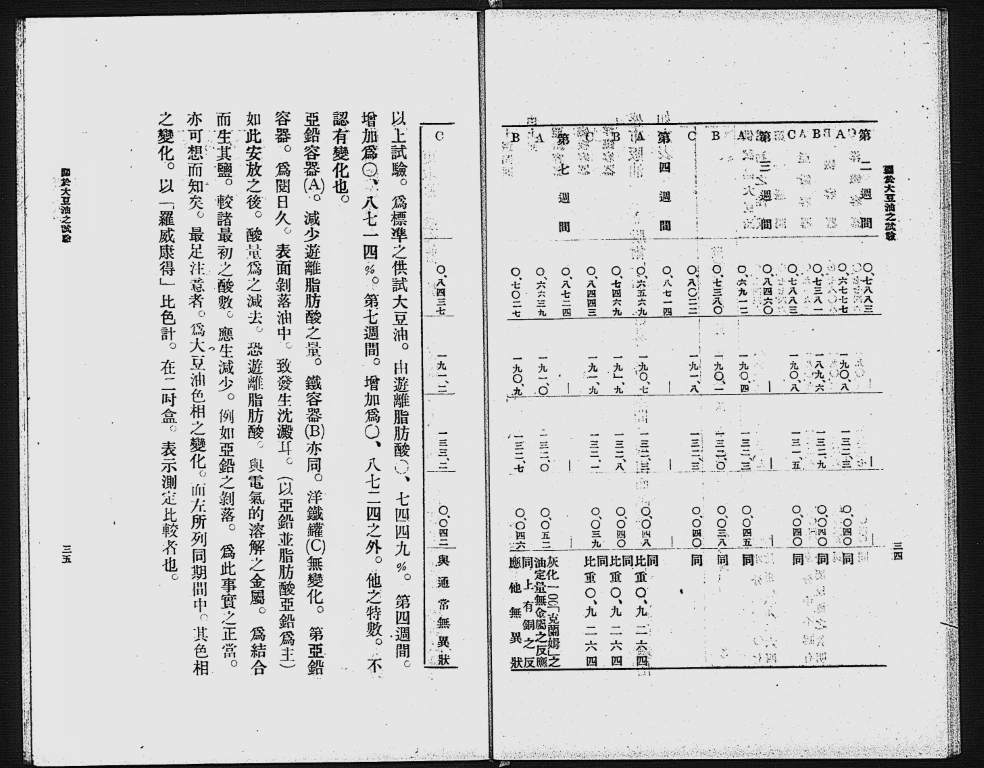 關於大豆油之試驗
三四
第二週間 〇、七八八三
A 〇、六七七七 一九〇、八 一三二、三 〇、〇四〇 同
B 〇、七三八一 一八九、六 一三二、九 〇、〇四〇 同
C 〇、七八八三 一九〇、八 一三一、五 〇、〇四〇 同
第三週間 〇、八四六〇
A 〇、六九一二 一九〇、四 一三二、三 〇、〇四五 同
B 〇、七三八〇 一九〇、一 一三二、〇 〇、〇三八 同
C 〇、八〇二二 一九一、八 一三二、三 〇、〇四〇 同
第四週間 〇、八七一四
A 〇、六五六九 一九〇、七 一三二、三 〇、〇四八 同 比重〇、九二六四
B 〇、七四六九 一九一、九 一三二、八 〇、〇四〇 同 比重〇、九二六四
C 〇、八四四三 一九一、九 一三二、一 〇、〇三九 同 比重〇、九二六四
第七週間 〇、八七二四
A 〇、六六三九 一九一、〇 一三二、〇 〇、〇五二 灰化一〇〇「克蘭姆」之油定量無金屬之反應
B 〇、七〇二七 一九〇、九 一三二、七 〇、〇四六 同上有銅之反應他無異狀
C 〇、八四三七 一九一、二 一三三、二 〇、〇四二 與通常無異狀
以上試驗。爲標準之供試大豆油。由遊離脂肪酸〇、七四四九%。第四週間。
增加爲〇、八七一四%。第七週間。增加爲〇、八七二四之外。他之特數。不
認有變化也。
亞鉛容器(A)。減少遊離脂肪酸之量。鐵容器(B)亦同。洋鐵罐(C)無變化。第亞鉛
容器。爲閱日久。表面剝落油中。致發生沈澱耳。(以亞鉛並脂肪酸亞鉛爲主)
如此安放之後。酸量爲之減去。恐遊離脂肪酸。與電氣的溶解之金屬。爲結合
而生其鹽。較諸最初之酸數。應生減少。例如亞鉛之剝落。爲此事實之正當。
亦可想而知矣。最足注意者。爲大豆油色相之變化。而左所列同期間中。其色相
之變化。以「羅威康得」比色計。在二吋盒。表示測定比較者也。
關於大豆油之試驗
三五